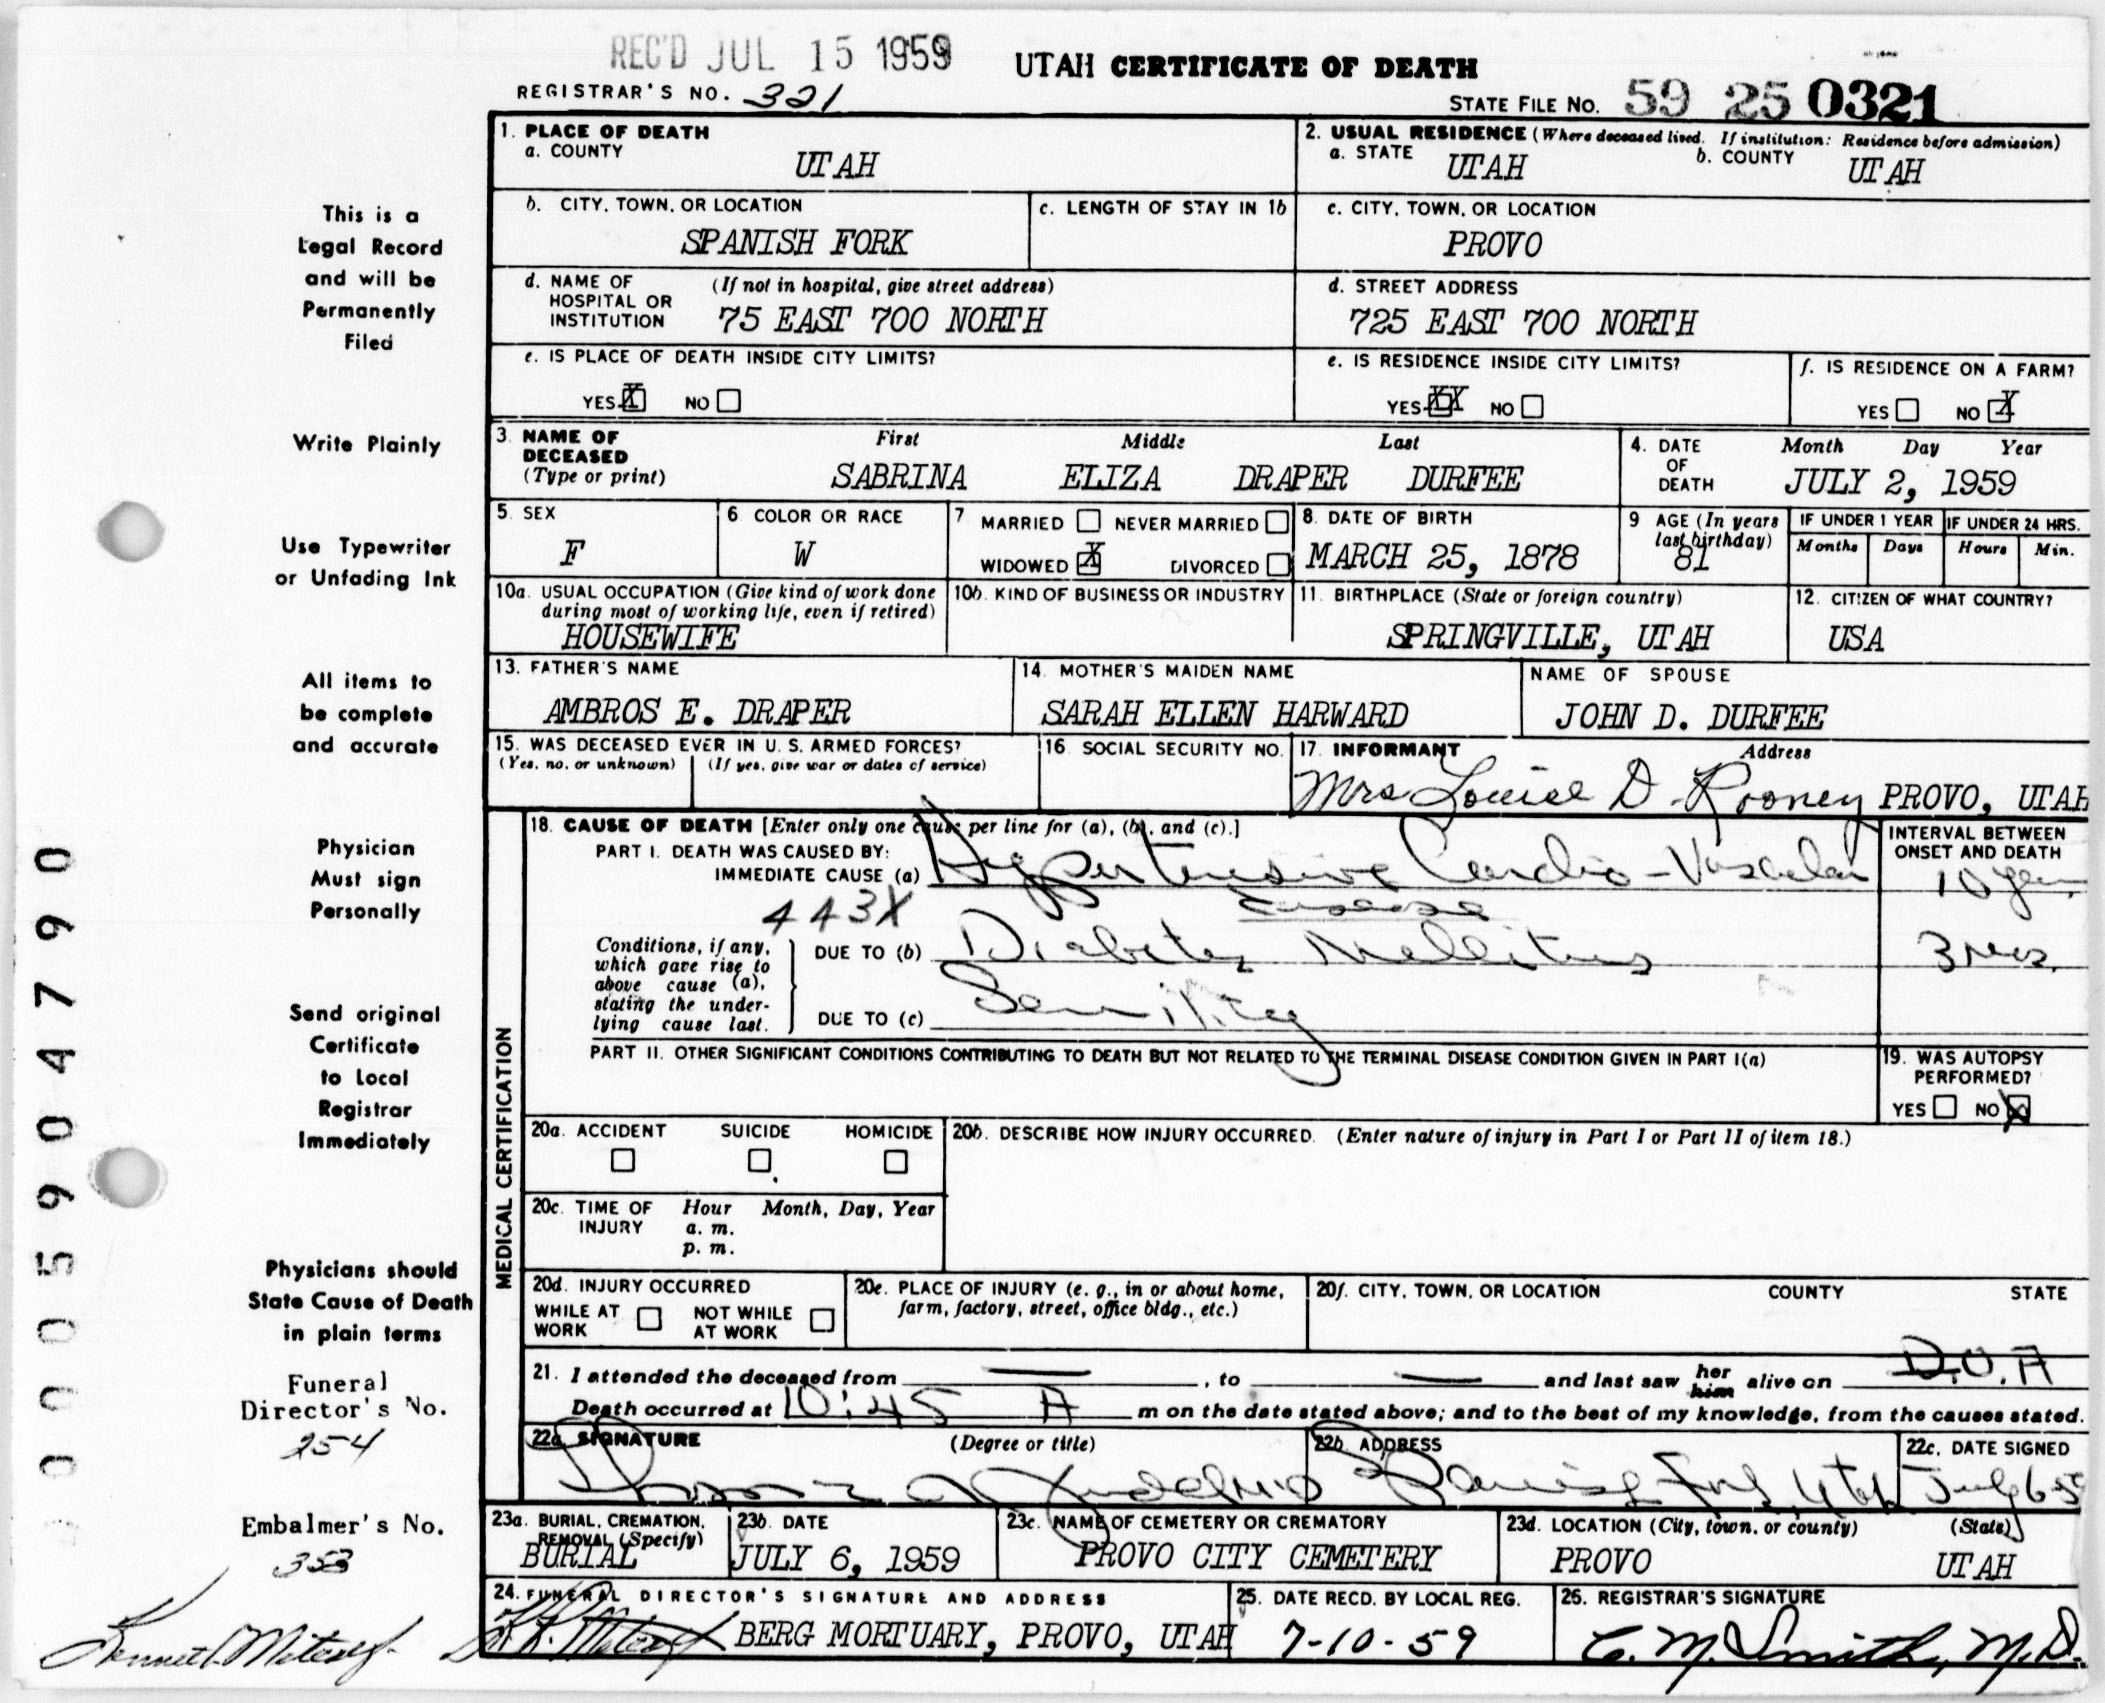 REC'D JUL 15 1959
UTAH CERTIFICATE OF DEATH
REGISTRAR'S NO. 321
STATE FILE No. 59 25 0321
This is a
Legal Record
and will be
Permanently
Filed
Write Plainly
Use Typewriter
or Unfading Ink
All items to
be complete
and accurate
Physician
Must sign
Personally
Send original
Certificate
to Local
Registrar
Immediately
Physicians should
State Cause of Death
in plain terms
Funeral
Director's No.
254
Embalmer's No.
353
Kenneth Metcalf
0005904790
1. PLACE OF DEATH
a. COUNTY
UTAH
2. USUAL RESIDENCE (Where deceased lived. If institution: Residence before admission)
a. STATE UTAH b. COUNTY UTAH
b. CITY, TOWN, OR LOCATION
SPANISH FORK
c. LENGTH OF STAY IN 1b
c. CITY, TOWN, OR LOCATION
PROVO
d. NAME OF HOSPITAL OR INSTITUTION (If not in hospital, give street address)
75 EAST 700 NORTH
d. STREET ADDRESS
725 EAST 700 NORTH
e. IS PLACE OF DEATH INSIDE CITY LIMITS?
YES X NO
e. IS RESIDENCE INSIDE CITY LIMITS?
YES XX NO
f. IS RESIDENCE ON A FARM?
YES NO X
3. NAME OF DECEASED (Type or print)
First Middle Last
SABRINA ELIZA DRAPER DURFEE
4. DATE OF DEATH
Month Day Year
JULY 2, 1959
5. SEX
F
6 COLOR OR RACE
W
7 MARRIED NEVER MARRIED
WIDOWED X DIVORCED
8. DATE OF BIRTH
MARCH 25, 1878
9 AGE (In years last birthday)
81
IF UNDER 1 YEAR
Months Days
IF UNDER 24 HRS.
Hours Min.
10a. USUAL OCCUPATION (Give kind of work done during most of working life, even if retired)
HOUSEWIFE
10b. KIND OF BUSINESS OR INDUSTRY
11. BIRTHPLACE (State or foreign country)
SPRINGVILLE, UTAH
12. CITIZEN OF WHAT COUNTRY?
USA
13. FATHER'S NAME
AMBROS E. DRAPER
14. MOTHER'S MAIDEN NAME
SARAH ELLEN HARWARD
NAME OF SPOUSE
JOHN D. DURFEE
15. WAS DECEASED EVER IN U. S. ARMED FORCES?
(Yes, no, or unknown) (If yes, give war or dates of service)
16. SOCIAL SECURITY NO.
17. INFORMANT Address
Mrs Louise D. Rooney PROVO, UTAH
MEDICAL CERTIFICATION
18. CAUSE OF DEATH [Enter only one cause per line for (a), (b), and (c).]
PART I. DEATH WAS CAUSED BY:
IMMEDIATE CAUSE (a) Hypertensive Cardio-Vascular
disease
443X
INTERVAL BETWEEN ONSET AND DEATH
10 years
Conditions, if any, which gave rise to above cause (a), stating the underlying cause last.
DUE TO (b) Diabetes Mellitus
3 yrs.
DUE TO (c) Senility
PART II. OTHER SIGNIFICANT CONDITIONS CONTRIBUTING TO DEATH BUT NOT RELATED TO THE TERMINAL DISEASE CONDITION GIVEN IN PART I(a)
19. WAS AUTOPSY PERFORMED?
YES NO X
20a. ACCIDENT SUICIDE HOMICIDE
20b. DESCRIBE HOW INJURY OCCURRED. (Enter nature of injury in Part I or Part II of item 18.)
20c. TIME OF INJURY Hour Month, Day, Year
a. m.
p. m.
20d. INJURY OCCURRED
WHILE AT WORK NOT WHILE AT WORK
20e. PLACE OF INJURY (e. g., in or about home, farm, factory, street, office bldg., etc.)
20f. CITY, TOWN, OR LOCATION COUNTY STATE
21. I attended the deceased from —, to — and last saw her him alive on D.O.A
Death occurred at 10:45 A m on the date stated above; and to the best of my knowledge, from the causes stated.
22a. SIGNATURE (Degree or title)
22b. ADDRESS
Spanish Fork, Utah
22c. DATE SIGNED
July 6 59
23a. BURIAL, CREMATION, REMOVAL (Specify)
BURIAL
23b. DATE
JULY 6, 1959
23c. NAME OF CEMETERY OR CREMATORY
PROVO CITY CEMETERY
23d. LOCATION (City, town, or county) (State)
PROVO UTAH
24. FUNERAL DIRECTOR'S SIGNATURE AND ADDRESS
BERG MORTUARY, PROVO, UTAH
25. DATE RECD. BY LOCAL REG.
7-10-59
26. REGISTRAR'S SIGNATURE
C. M. Smith, M.D.